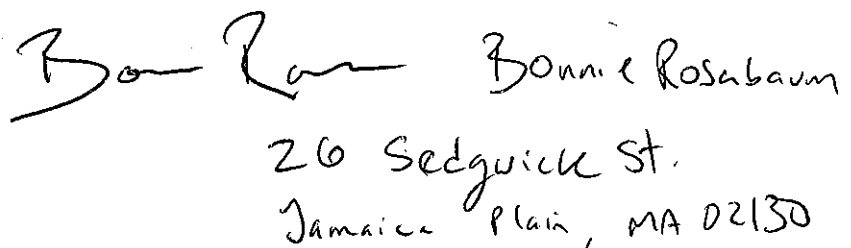 Bonnie Rosenbaum
26 Sedgwick St.
Jamaica Plain, MA 02130